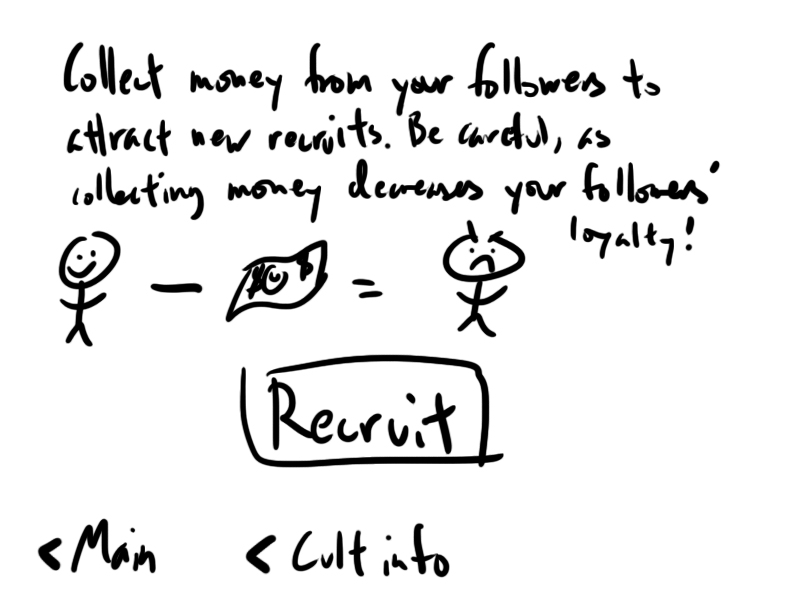 Collect money from your followers to
attract new recruits. Be careful, as
collecting money decreases your followers'
loyalty!
- =
Recruit
< Main < Cult info